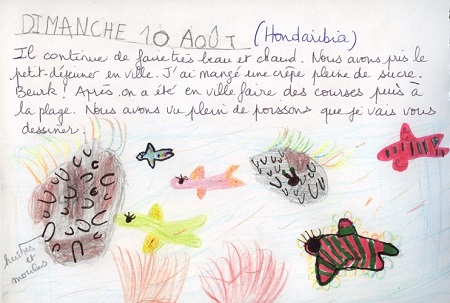 DIMANCHE 10 AOÛT (Hondaribia)
Il continue de faire très beau et chaud. Nous avons pris le
petit-déjeuner en ville. J'ai mangé une crêpe pleine de sucre.
Beurk! Après on a été en ville faire des courses puis à
la plage. Nous avons vu plein de poissons que je vais vous
dessiner.
huîtres
et
moules